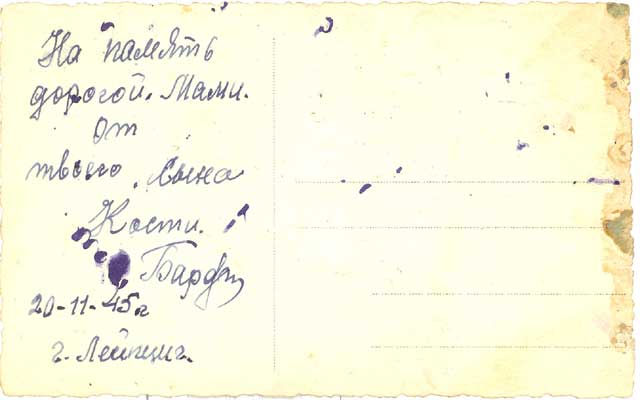 На память
дорогой. Мами.
от
твоего сына
Кости.
20-11-45г
г. Лейпциг.